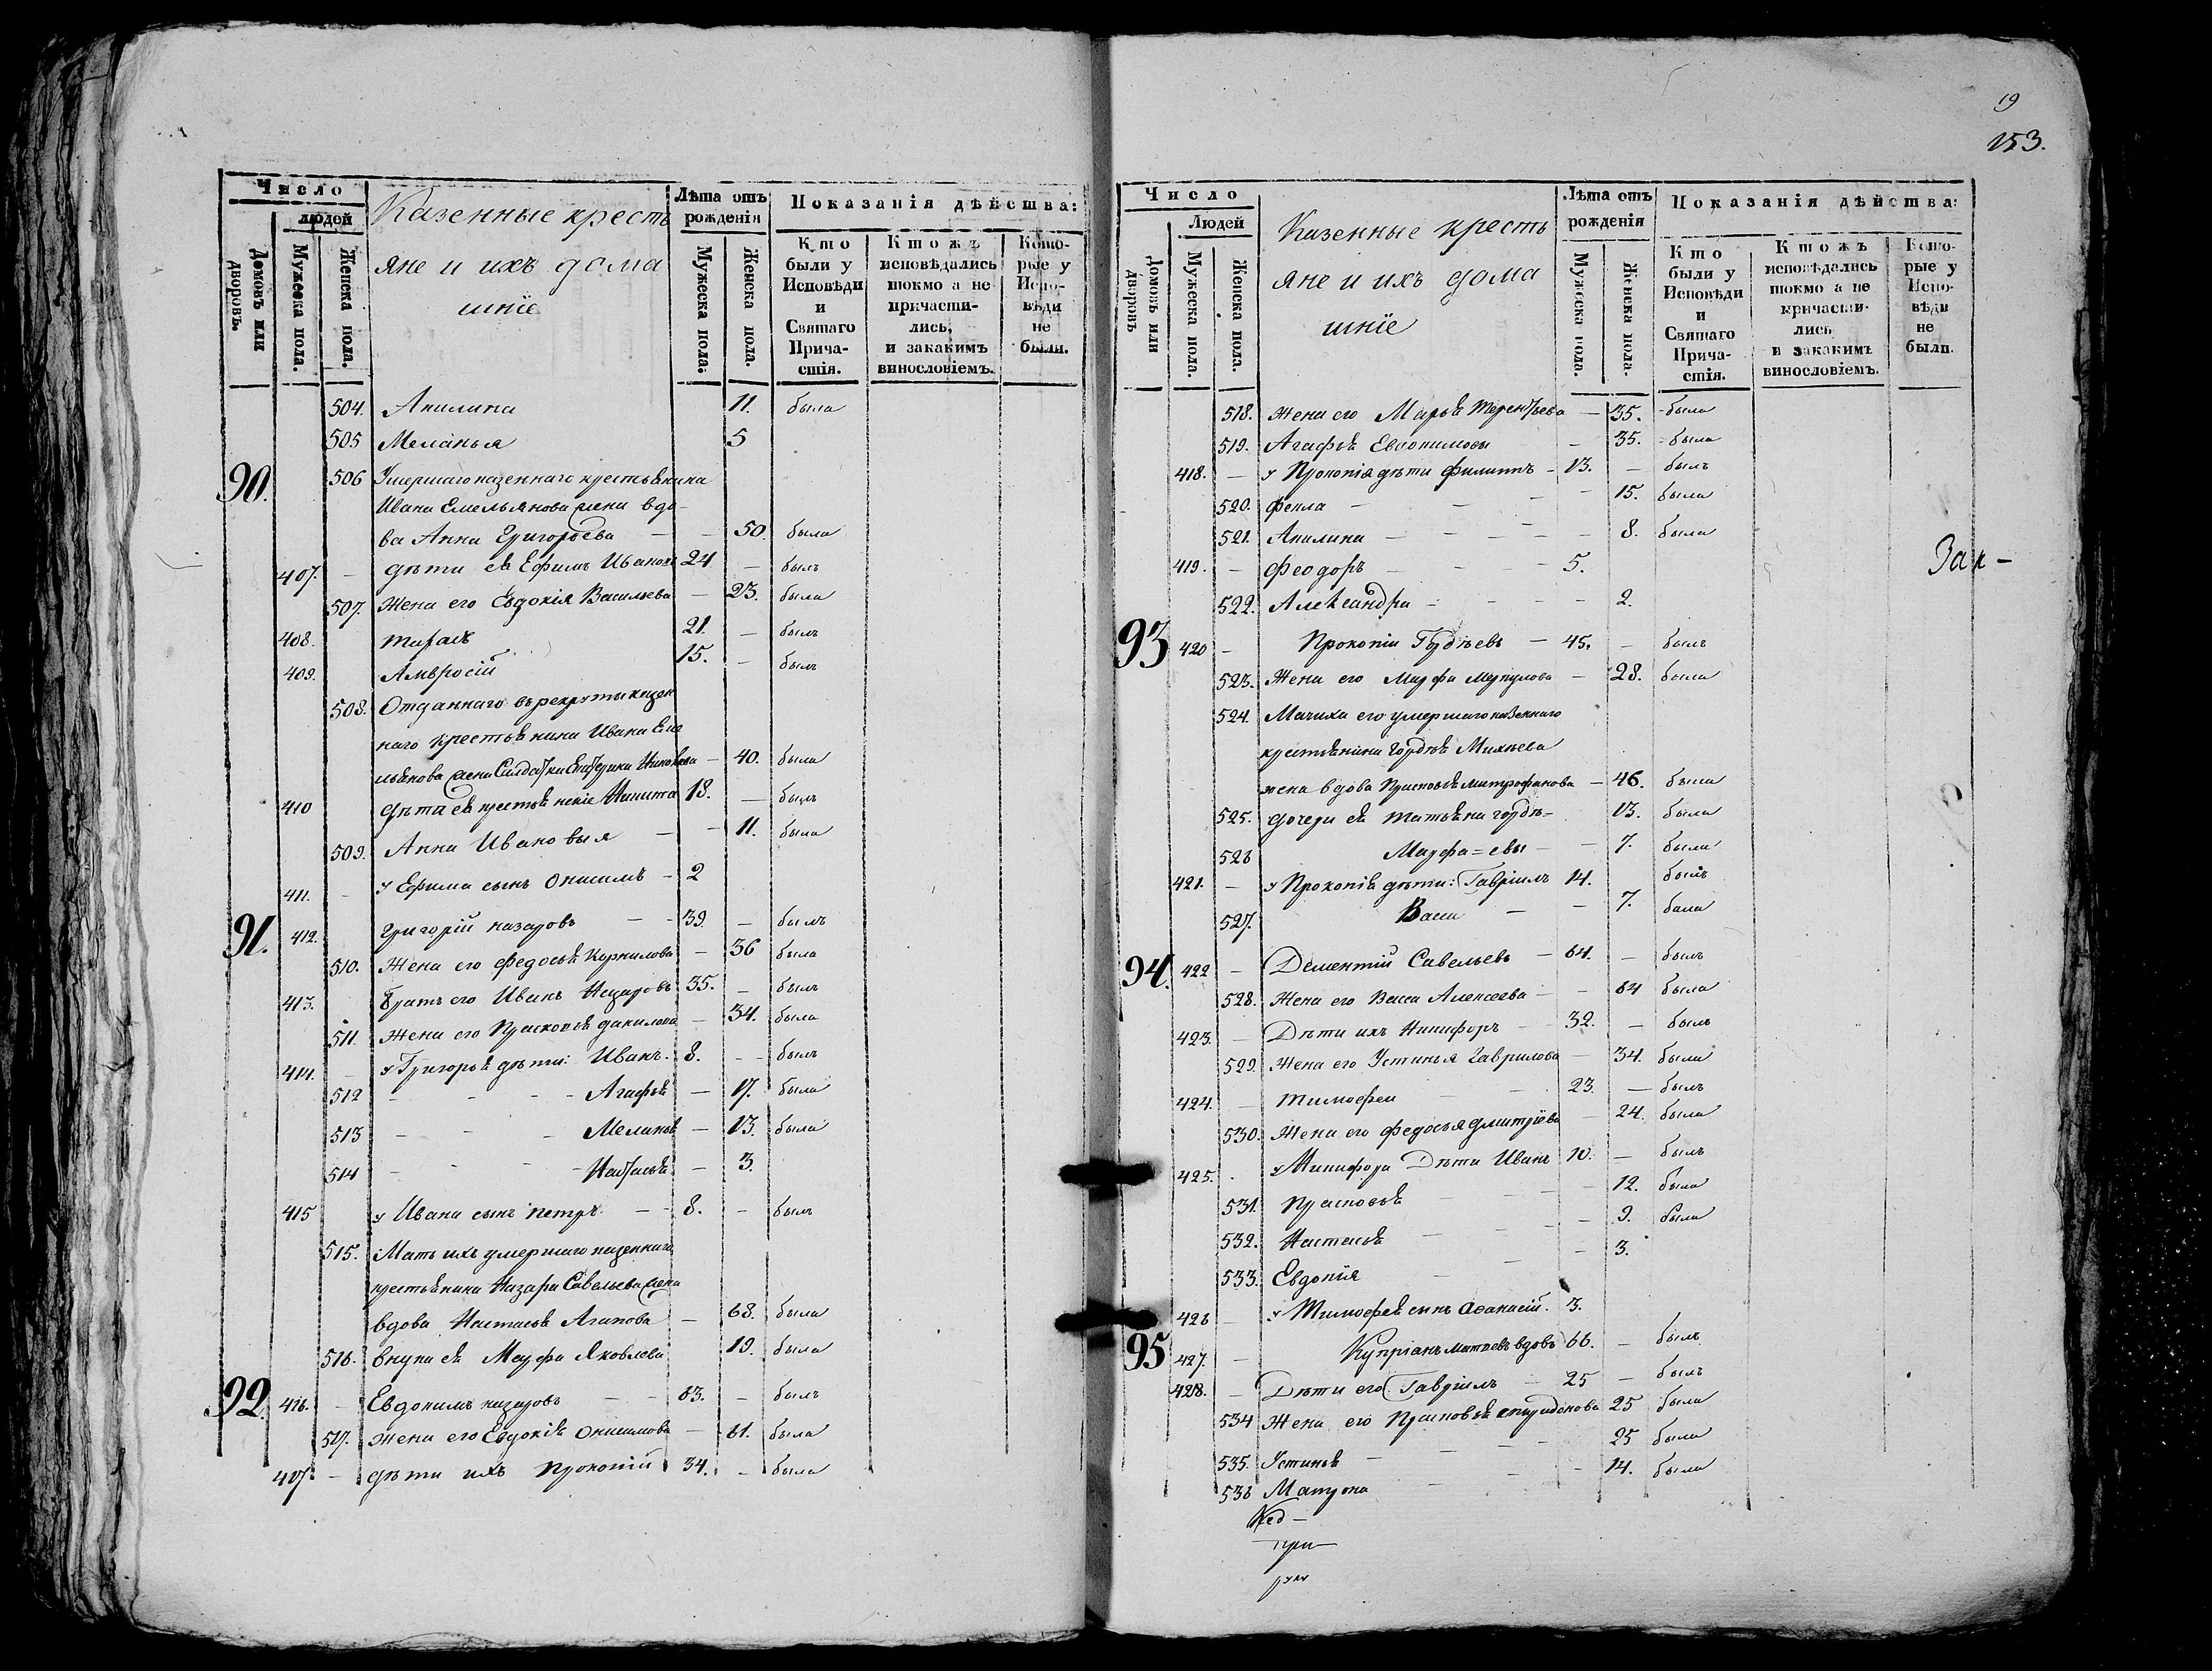 Число
людей
Домовъ или дворовъ.
Мужеска пола.
Женска пола.
Казенные кресть
яне и ихъ дома
шнїе
Лѣта отъ рожденія
Мужеска пола.
Женска пола.
Показанія дѣйства:
Кто были у Исповѣди и Святаго Причастія.
Ктожъ исповѣдались токмо а не причастились, и закакимъ винословіемъ.
Которые у Исповѣди не были.
504. Акилина 11. была
505 Меланья 5
90. 506 Умершаго казеннаго крестьянина
Ивана Емельянова жена вдо-
ва Анна Григорьева — 50. была
407. — дѣти ея Ефимъ Ивановъ 24 — былъ
507. Жена его Евдокія Васильева — 23. была
408. Тарасъ 21. — былъ
409. Амвросій 15. — былъ
508. Отданнаго въ рекруты казен
наго крестьянина Ивана Еме
льянова жена Салдатка Екатерина — 40. была
410 дѣти ея крестьянскіе Никита 18. — былъ
509. Анна Ивановыя — 11. была
411. — у Ефима сынъ Онисимъ — 2
91. 412. Григорій Назаровъ — 39. — былъ
510. Жена его Федосья Корнилова — 36 была
413. Братъ его Иванъ Назаровъ 35. — былъ
511. Жена его Прасковья Данилова — 34. была
414. — у Григорья дѣти: Иванъ. 8. — былъ
512 - - - Агафья — 17. была
513 - - - Меланья — 13. была
514 - - - Настасья — 3.
415 у Ивана сынъ Петръ. — 8. — былъ
515. Мать ихъ умершаго казеннаго
крестьянина Назара Савельева жена
вдова Настасья Агапова — 68. была
516. Внука ея Марфа Яковлева 19. была
92. 416. — Евдокимъ Назаровъ — 63. — былъ
517. Жена его Евдокія Онисимова — 61. была
417. — дѣти ихъ Прокопій 34. — была
19
153.
Число
Людей
Домовъ или дворовъ
Мужеска пола.
Женска пола.
Казенные кресть
яне и ихъ дома
шнїе
Лѣта отъ рожденія
Мужеска пола.
Женска пола.
Показанія дѣйства:
Кто были у Исповѣди и Святаго Причастія.
Ктожъ исповѣдались токмо а не причастились и закакимъ винословіемъ.
Которые у Исповѣди не были.
518. Жена его Марья Терентьева — 35. была
519. Агафья Евдокимова — 35. была
418. — у Прокопія дѣти Филиппъ — 13. — былъ
520. Фекла — 15. была
521. Акилина — 8. была
419. — Феодоръ — 5.
Зак —
522. Александра — 2.
93 420 — Прокопій Гордѣевъ — 45. — былъ
523. Жена его Марфа Меркулова — 28. была
524. Мачиха его умершаго казеннаго
крестьянина Гордѣя Михѣева
жена вдова Прасковья Митрофанова — 46. была
525. Дочери ея Татьяна Гордѣ= 13. была
526 Марфа = евы — 7. была
421. — у Прокопія дѣти: Гавріилъ 14. былъ
527. Васса — 7. бала
94. 422 — Дементій Савельевъ — 64. — былъ
528. Жена его Васса Алексеева — 64 была
423. — Дѣти ихъ Никифоръ — 32. — былъ
529. Жена его Устинья Гаврилова — 34. была
424. — Тимофеи 23. — былъ
530. Жена его Федосья Дмитріева — 24. была
425. у Никифора Дѣти Иванъ 10. — былъ
531. Прасковья — 12. была
532. Настасья — 9. была
533. Евдокїя — 3.
426 — у Тимофея сынъ Афанасій. 3.
95 427. — Купріанъ вдовъ 66. — былъ
428. — Дѣти его Гавріилъ — 25 — былъ
534 Жена его Прасковья Спиридонова 25 была
535. Устинья — 25 была
536 Матрона — 14. была